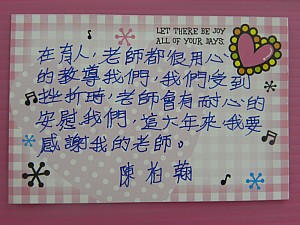 LET THERE BE JOY
ALL OF YOUR DAYS.
在育人,老師都很用心
的教導我們,我們受到
挫折時,老師會有耐心的
安慰我們,這六年來我要
感謝我的老師。
陳柏翰